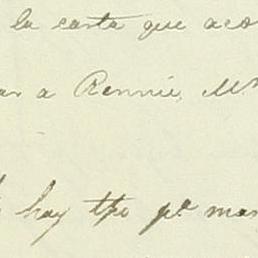 la carta que aco
ar a Rennie, Mr
hay tpo pa man